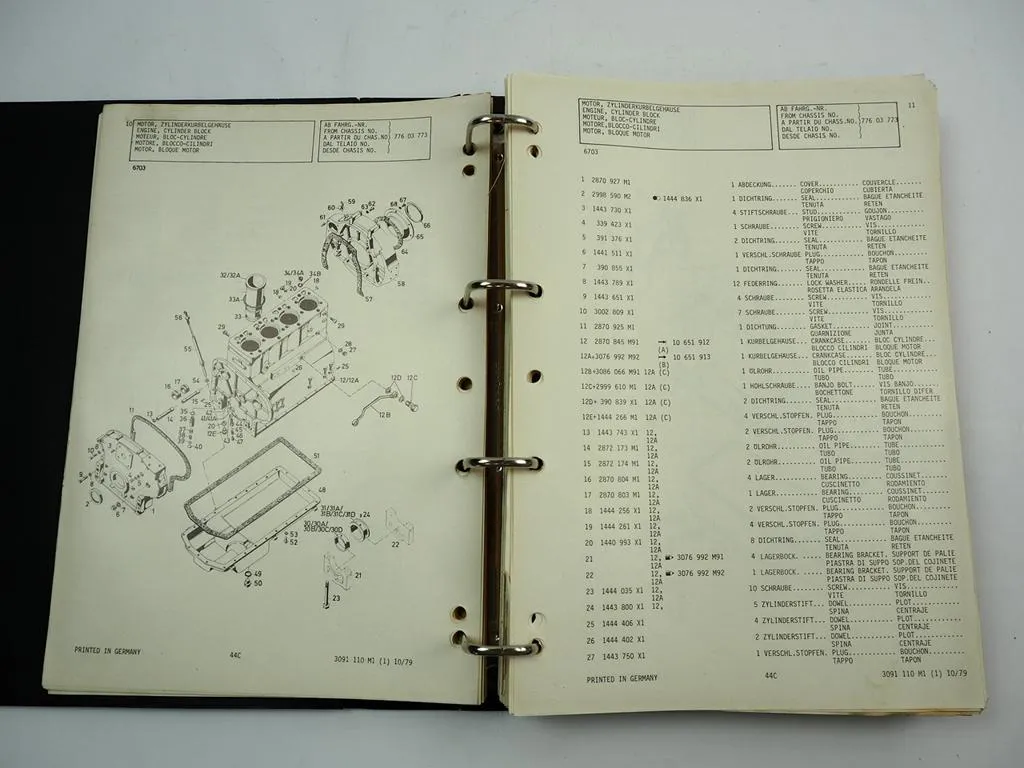 10
MOTOR, ZYLINDERKURBELGEHAUSE
ENGINE, CYLINDER BLOCK
MOTEUR, BLOC-CYLINDRE
MOTORE, BLOCCO-CILINDRI
MOTOR, BLOQUE MOTOR
AB FAHRG.-NR.
FROM CHASSIS NO.
A PARTIR DU CHAS.NO. 776 03 773
DAL TELAIO NO.
DESDE CHASIS NO.
6703
PRINTED IN GERMANY 44C 3091 110 M1 (1) 10/79
11
MOTOR, ZYLINDERKURBELGEHAUSE
ENGINE, CYLINDER BLOCK
MOTEUR, BLOC-CYLINDRE
MOTORE,BLOCCO-CILINDRI
MOTOR, BLOQUE MOTOR
AB FAHRG.-NR.
FROM CHASSIS NO.
A PARTIR DU CHASS.NO. 776 03 773
DAL TELAIO NO.
DESDE CHASIS NO.
6703
1 2870 927 M1 1 ABDECKUNG...... COVER.......... COUVERCLE.......
COPERCHIO CUBIERTA
2 2998 590 M2 1444 836 X1 1 DICHTRING...... SEAL........... BAGUE ETANCHEITE
TENUTA RETEN
3 1443 730 X1 4 STIFTSCHRAUBE.. STUD........... GOUJON..........
PRIGIONIERO VASTAGO
4 339 423 X1 1 SCHRAUBE....... SCREW.......... VIS.............
VITE TORNILLO
5 391 376 X1 2 DICHTRING...... SEAL........... BAGUE ETANCHEITE
TENUTA RETEN
6 1441 511 X1 1 VERSCHL.SCHRAUBE PLUG........... BOUCHON.........
TAPPO TAPON
7 390 855 X1 1 DICHTRING...... SEAL........... BAGUE ETANCHEITE
TENUTA RETEN
8 1443 789 X1 12 FEDERRING...... LOCK WASHER.... RONDELLE FREIN..
ROSETTA ELASTICA ARANDELA
9 1443 651 X1 4 SCHRAUBE....... SCREW.......... VIS.............
VITE TORNILLO
10 3002 809 X1 7 SCHRAUBE....... SCREW.......... VIS.............
VITE TORNILLO
11 2870 925 M1 1 DICHTUNG....... GASKET......... JOINT...........
GUARNIZIONE JUNTA
12 2870 845 M91 → 10 651 912 1 KURBELGEHAUSE.. CRANKCASE...... BLOC CYLINDRE...
(A) BLOCCO CILINDRI BLOQUE MOTOR
12A+3076 992 M92 → 10 651 913 1 KURBELGEHAUSE.. CRANKCASE...... BLOC CYLINDRE...
(B) BLOCCO CILINDRI BLOQUE MOTOR
12B+3086 066 M91 12A (C) 1 OLROHR......... OIL PIPE....... TUBE............
TUBO TUBO
12C+2999 610 M1 12A (C) 1 HOHLSCHRAUBE... BANJO BOLT..... VIS BANJO.......
BOCHETTONE TORNILLO DIFER
12D+ 390 839 X1 12A (C) 2 DICHTRING...... SEAL........... BAGUE ETANCHEITE
TENUTA RETEN
12E+1444 266 M1 12A (C) 4 VERSCHL.STOPFEN. PLUG........... BOUCHON.........
TAPPO TAPON
13 1443 743 X1 12, 2 VERSCHL.STOPFEN. PLUG........... BOUCHON.........
12A TAPPO TAPON
14 2872 173 M1 12, 2 OLROHR......... OIL PIPE....... TUBE............
12A TUBO TUBO
15 2872 174 M1 12, 2 OLROHR......... OIL PIPE....... TUBE............
12A TUBO TUBO
16 2870 804 M1 12, 4 LAGER.......... BEARING........ COUSSINET.......
12A CUSCINETTO RODAMIENTO
17 2870 803 M1 12, 1 LAGER.......... BEARING........ COUSSINET.......
12A CUSCINETTO RODAMIENTO
18 1444 256 X1 12, 4 VERSCHL.STOPFEN. PLUG........... BOUCHON.........
12A TAPPO TAPON
19 1444 261 X1 12, 4 VERSCHL.STOPFEN. PLUG........... BOUCHON.........
12A TAPPO TAPON
20 1440 993 X1 12, 8 DICHTRING...... SEAL........... BAGUE ETANCHEITE
12A TENUTA RETEN
21 12, 3076 992 M91 4 LAGERBOCK...... BEARING BRACKET. SUPPORT DE PALIE
12A PIASTRA DI SUPPO SOP.DEL COJINETE
22 12, 3076 992 M92 1 LAGERBOCK...... BEARING BRACKET. SUPPORT DE PALIE
12A PIASTRA DI SUPPO SOP.DEL COJINETE
23 1444 035 X1 12, 10 SCHRAUBE....... SCREW.......... VIS.............
12A VITE TORNILLO
24 1443 800 X1 12, 5 ZYLINDERSTIFT... DOWEL.......... PLOT............
SPINA CENTRAJE
25 1444 406 X1 4 ZYLINDERSTIFT... DOWEL.......... PLOT............
SPINA CENTRAJE
26 1444 402 X1 2 ZYLINDERSTIFT... DOWEL.......... PLOT............
SPINA CENTRAJE
27 1443 750 X1 1 VERSCHL.STOPFEN. PLUG........... BOUCHON.........
TAPPO TAPON
PRINTED IN GERMANY 44C 3091 110 M1 (1) 10/79